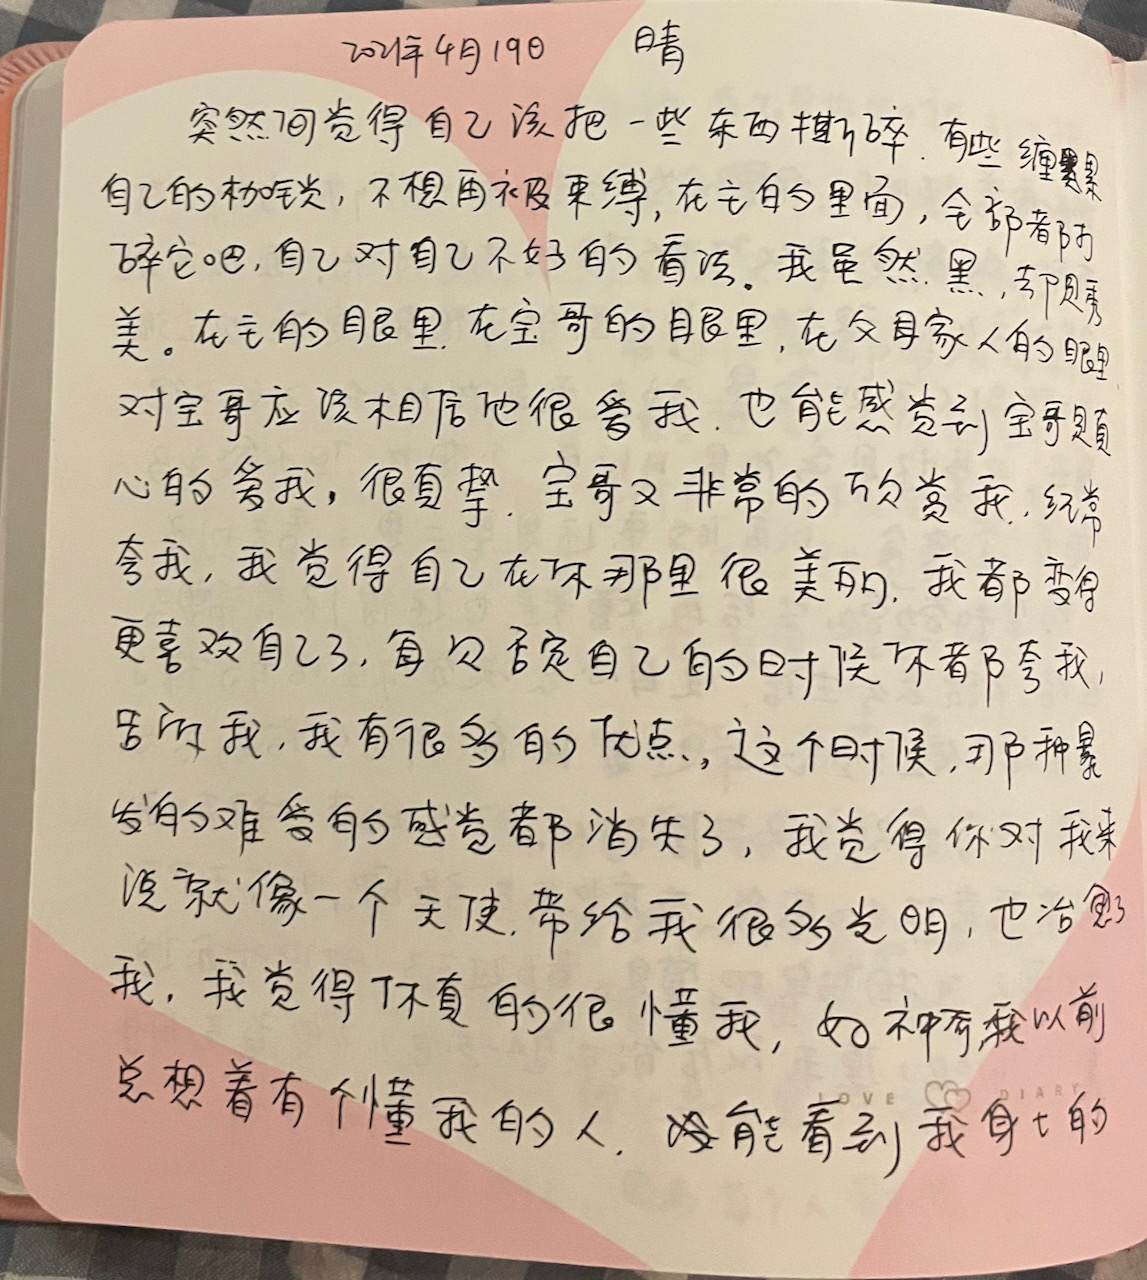 2021年4月19日 晴
突然间觉得自己该把一些东西撕碎.有些缠累
自己的枷锁,不想再被束缚,在主的里面,全部都打
碎它吧,自己对自己不好的看法。我虽然黑,却是秀
美。在主的眼里.在宝哥的眼里,在父母家人的眼里.
对宝哥应该相信他很爱我.也能感觉到宝哥真
心的爱我,很真挚.宝哥又非常的欣赏我.经常
夸我,我觉得自己在你那里很美丽.我都变得
更喜欢自己了,每次否定自己的时候你都夸我,
告诉我,我有很多的优点,这个时候,那种暴
发的难受的感觉都消失了,我觉得你对我来
说就像一个天使.带给我很多光明,也治愈了
我,我觉得你真的很懂我,好神奇,我以前
总想着有个懂我的人.能看到我身上的
LOVE DIARY